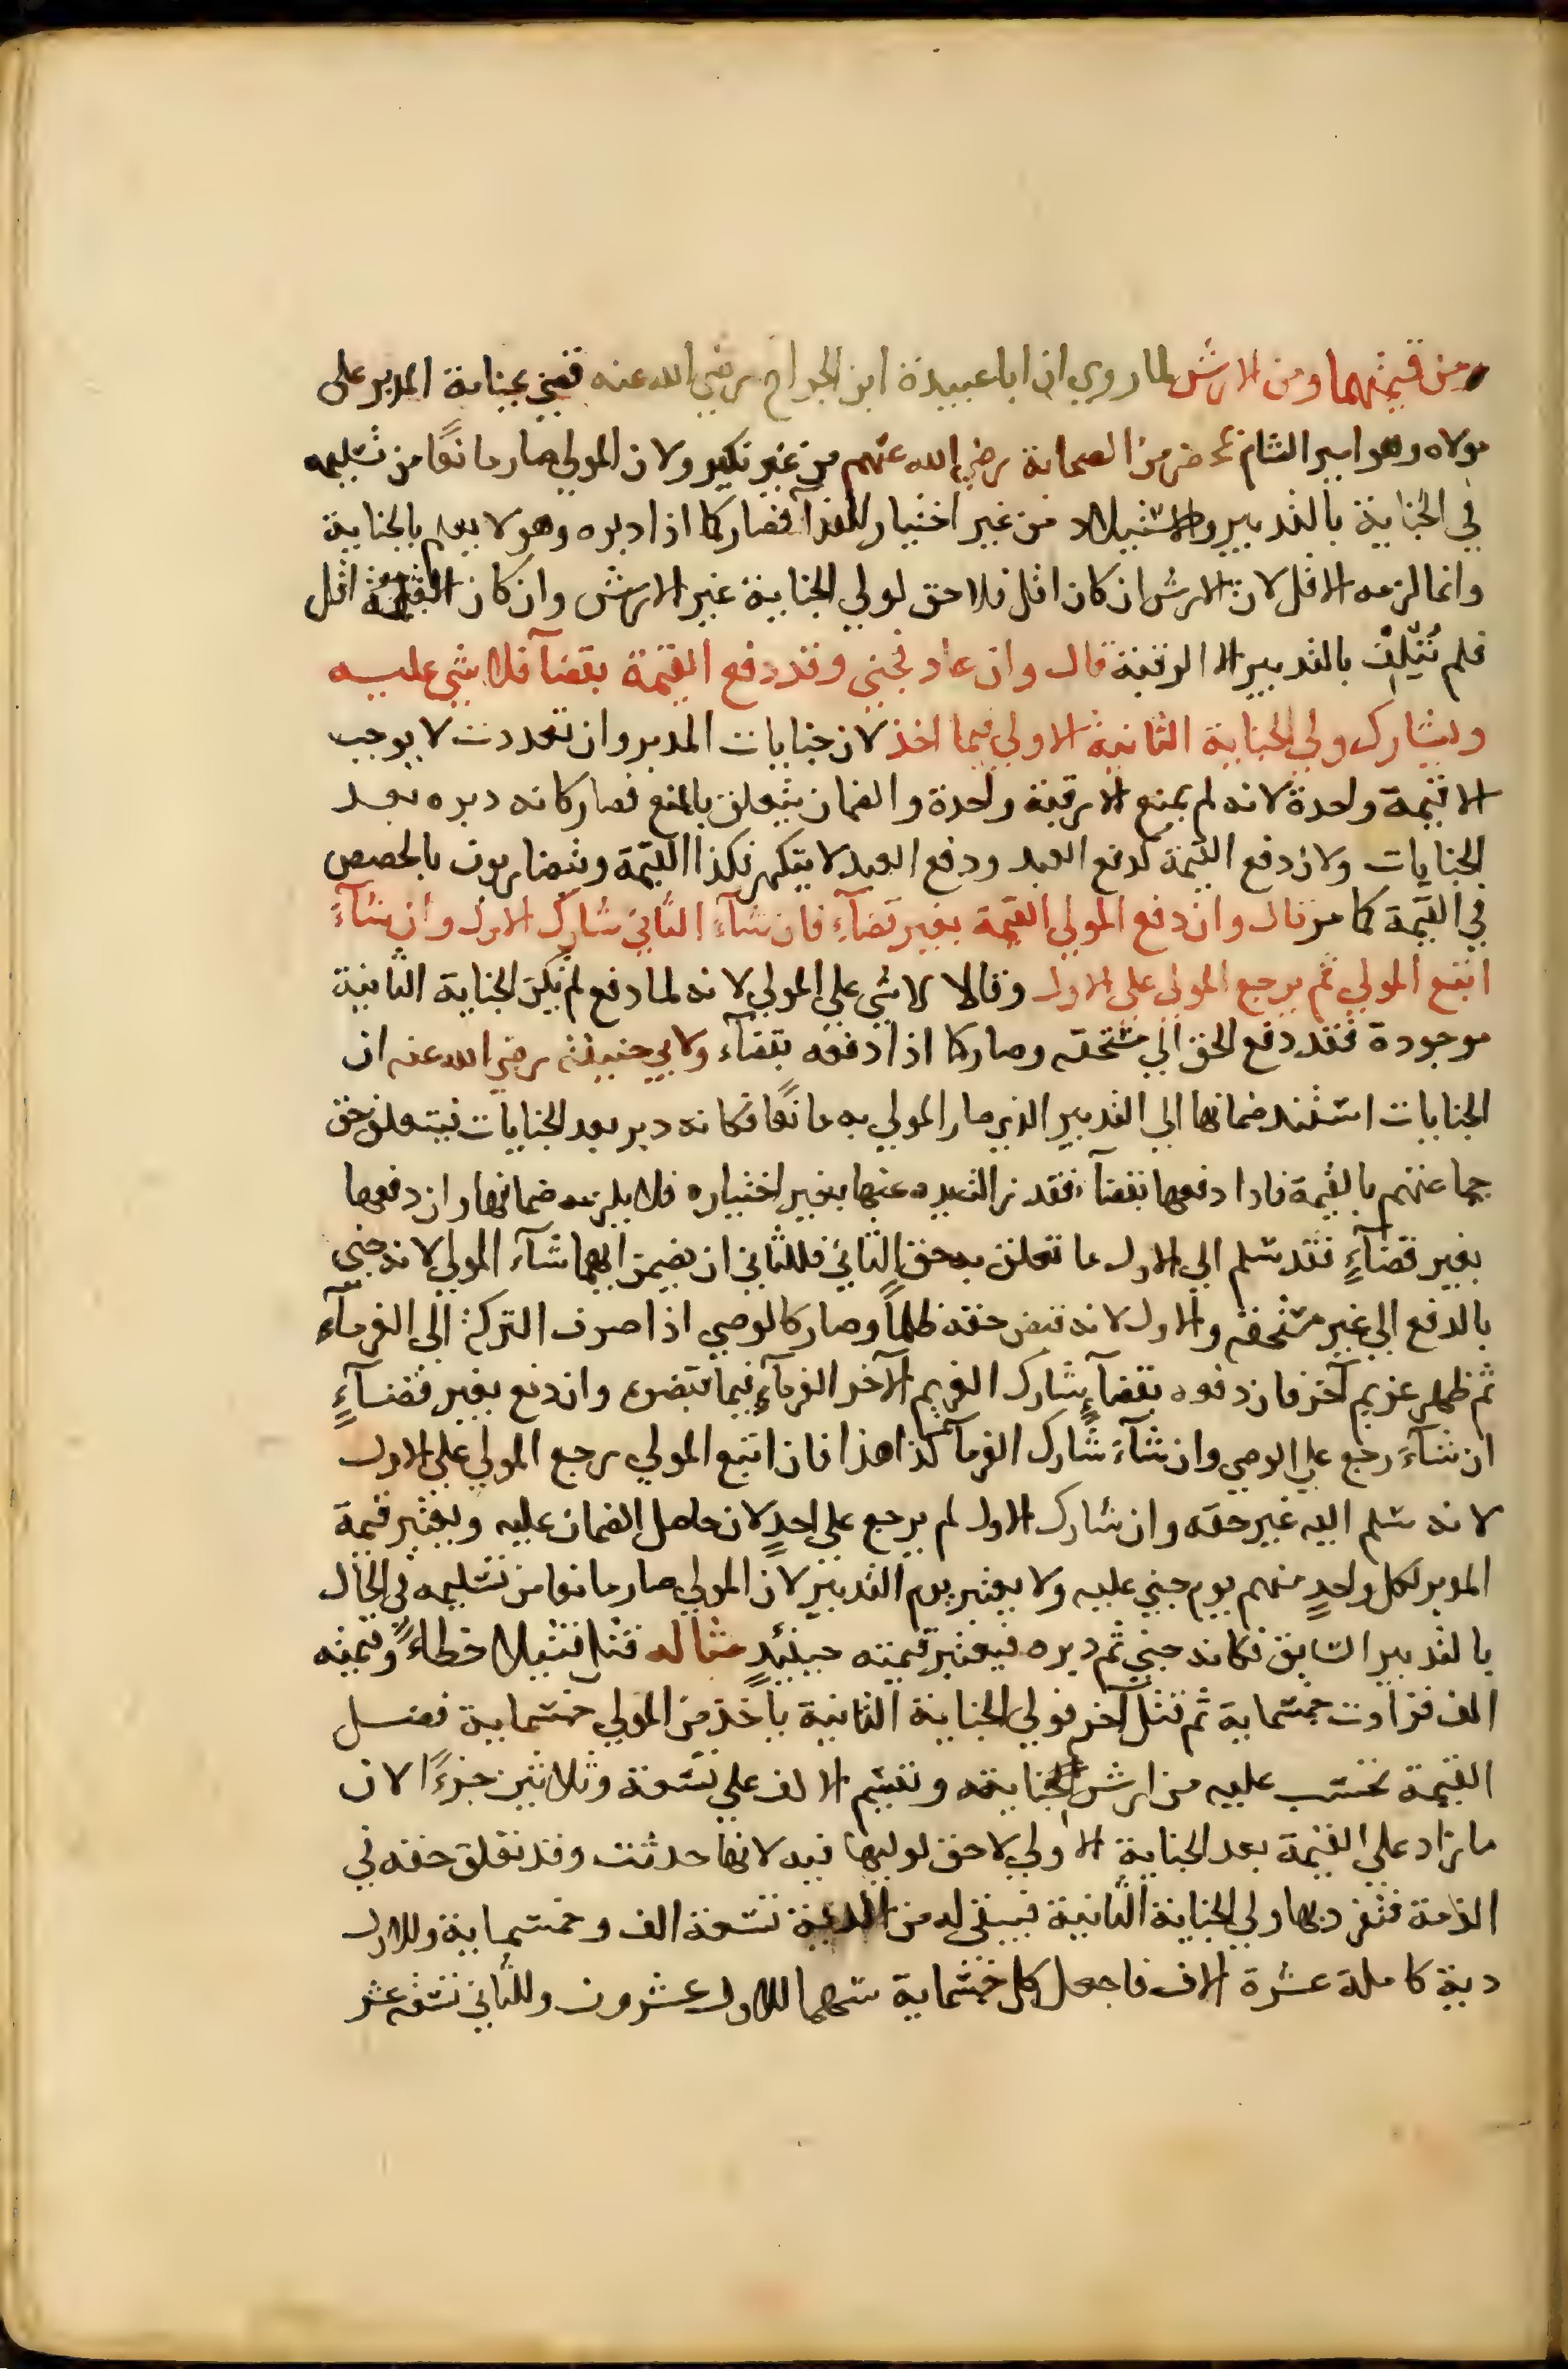 من قيمتهما ومن الارش لما روي ان ابا عبيدة ابن الجراح رضي الله عنه قضي بجناية المدبر على
مولاه وهو امير الشام بمحضر من الصحابة رضي الله عنهم من غير نكير ولان المولي صار مانعًا من تسليمه
في الجناية بالتدبير والاستيلاد من غير اختيار للفدآ فصار كما اذا دبره وهو لا يعلم بالجناية
وانما لزمه الاقل لان الارش ان كان اقل فلا حق لولي الجناية غير الارش وان كان القيمة اقل
فلم يُتلف بالتدبير الا الرقبة قال وان عاد فجني وقد دفع القيمة بقضآ فلا شي عليه
ويشارك ولي الجناية الثانية الاولي فيما اخذ لان جنايات المدبر وان تعددت لا يوجب
الا قيمة واحدة لانه لم يمنع الا رقبة واحدة والضمان يتعلق بالمنع فصار كانه دبره بعد
الجنايات ولان دفع القيمة كدفع العبد ودفع العبد لا يتكرر فكذا القيمة ويتضاربون بالحصص
في القيمة كما مر قال وان دفع المولي القيمة بغير قضآءٍ فان شآء الثاني شارك الاول وان شآءَ
اتبع المولي ثم يرجع المولي علي الاول وقالا لا شي علي المولي لانه لما دفع لم تكن الجناية الثانية
موجودة فقد دفع الحق الي مستحقه وصار كما اذا دفعه بقضآء ولابي حنيفة رضي الله عنه ان
الجنايات استند ضمانها الي التدبير الذي صار المولي به مانعًا فكانه دبر بعد الجنايات فيتعلق حق
جماعتهم بالقيمة فاذا دفعها بقضآء فقد زالت يده عنها بغير اختياره فلا يلزمه ضمانها وان دفعها
بغير قضآءٍ فقد سلم الي الاول ما تعلق به حق الثاني فللثاني ان يضمن ايهما شآء المولي لانه جني
بالدفع الي غير مستحقه والاول لانه قبض حقه ظلمًا وصار كالوصي اذا صرف التركة الي الغرمآء
ثم ظهر غريم آخر فان دفعه بقضآءٍ يشارك الغريم الآخر الغرمآء فيما قبضوه وان دفع بغير قضآءٍ
ان شآءَ رجع علي الوصي وان شآءَ شارك الغرمآ كذا هذا فان اتبع المولي رجع المولي علي الاول
لانه سلم اليه غير حقه وان شارك الاول لم يرجع علي احدٍ لان حاصل الضمان عليه ويعتبر قيمة
المدبر لكل واحدٍ منهم يوم جني عليه ولا يعتبر يوم التدبير لان المولي صار مانعا من تسليمه في الحال
بالتدبير السابق فكانه جني ثم دبره فيعتبر قيمته حينئذٍ مثاله قتل قتيلا خطاءً وقيمته
الف فزادت خمسماية ثم قتل آخر فولي الجناية الثانية ياخذ من المولي خمسماية فضل
القيمة تحتسب عليه من ارش الجنايته وتقسم الالف علي تسعة وثلاثين جزءًا لان
ما زاد علي القيمة بعد الجناية الاولي لا حق لوليها فيه لانها حدثت وقد تعلق حقه في
الذمة فتفرد بها ولي الجناية الثانية فيبقي له من الدية تسعة الف وخمسماية وللاول
دية كاملة عشرة الاف فاجعل كل خمسماية سهما للاول عشرون وللثاني تسعة عشر